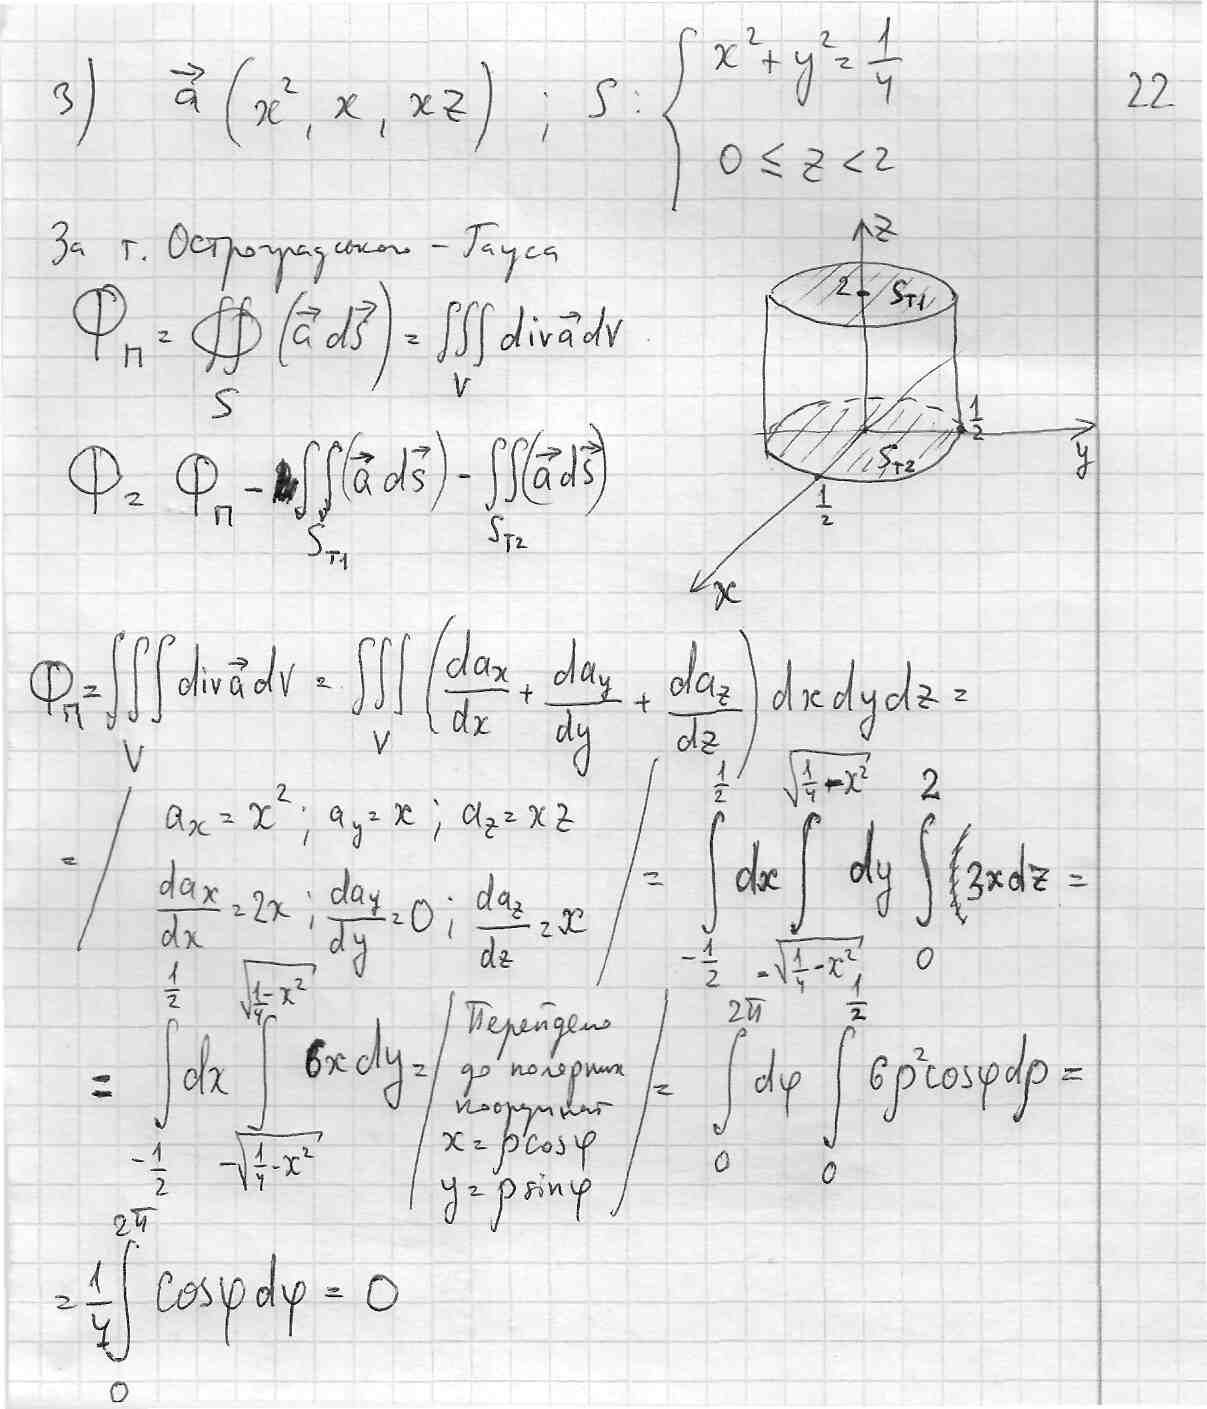 3) a⃗ (x², x, xz) ; S: { x² + y² = 1/4
0 ≤ z < 2
22
За т. Остроградського - Гауса
Φ_п = ∯_S (a⃗ ds⃗) = ∭_V div a⃗ dV
Φ = Φ_п - ∬_{S_T1} (a⃗ ds⃗) - ∬_{S_T2} (a⃗ ds⃗)
z
2 S_T1
1/2
S_T2 y
1/2
x
Φ_п = ∭_V div a⃗ dV = ∭_V (da_x/dx + da_y/dy + da_z/dz) dx dy dz =
= / a_x = x² ; a_y = x ; a_z = xz
da_x/dx = 2x ; da_y/dy = 0 ; da_z/dz = x / = ∫_{-1/2}^{1/2} dx ∫_{-√(1/4-x²)}^{√(1/4-x²)} dy ∫_0^2 3x dz =
= ∫_{-1/2}^{1/2} dx ∫_{-√(1/4-x²)}^{√(1/4-x²)} 6x dy = / Перейдемо
до полярних
координат
x = ρcosφ
y = ρsinφ / = ∫_0^{2π} dφ ∫_0^{1/2} 6ρ²cosφ dρ =
= 1/4 ∫_0^{2π} cosφ dφ = 0